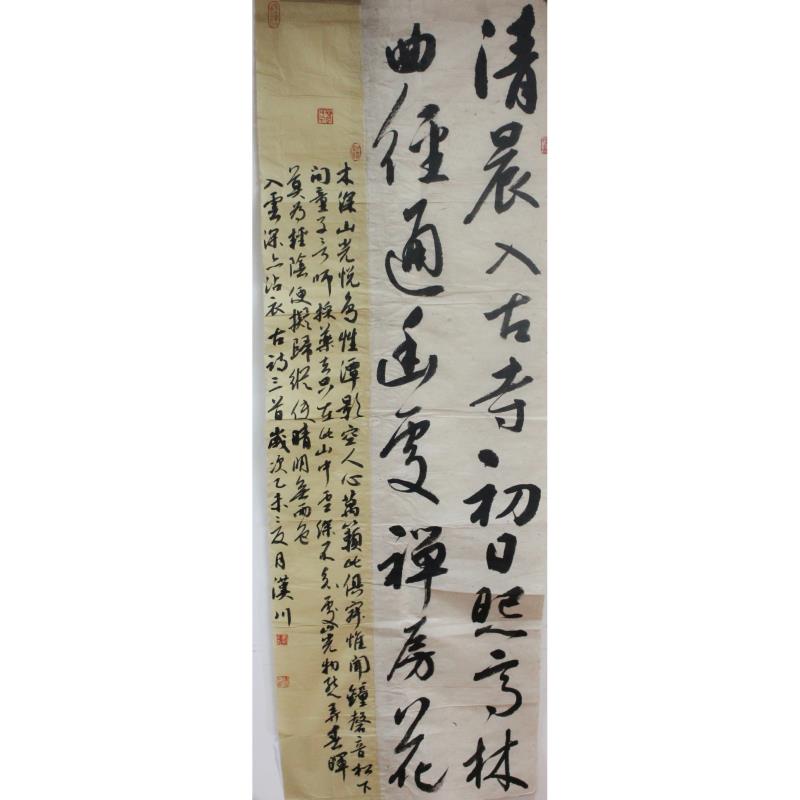 清晨入古寺初日照高林
曲徑通幽處禅房花
木深山光悦鳥性潭影空人心萬籟此俱寂惟聞鐘磬音松下
问童子言师採藥去只在此山中雲深不知處山光物態弄春暉
莫为輕陰便擬歸縱使晴明無雨色
入雲深处沾衣古詩三首歲次乙未之夏月漢川